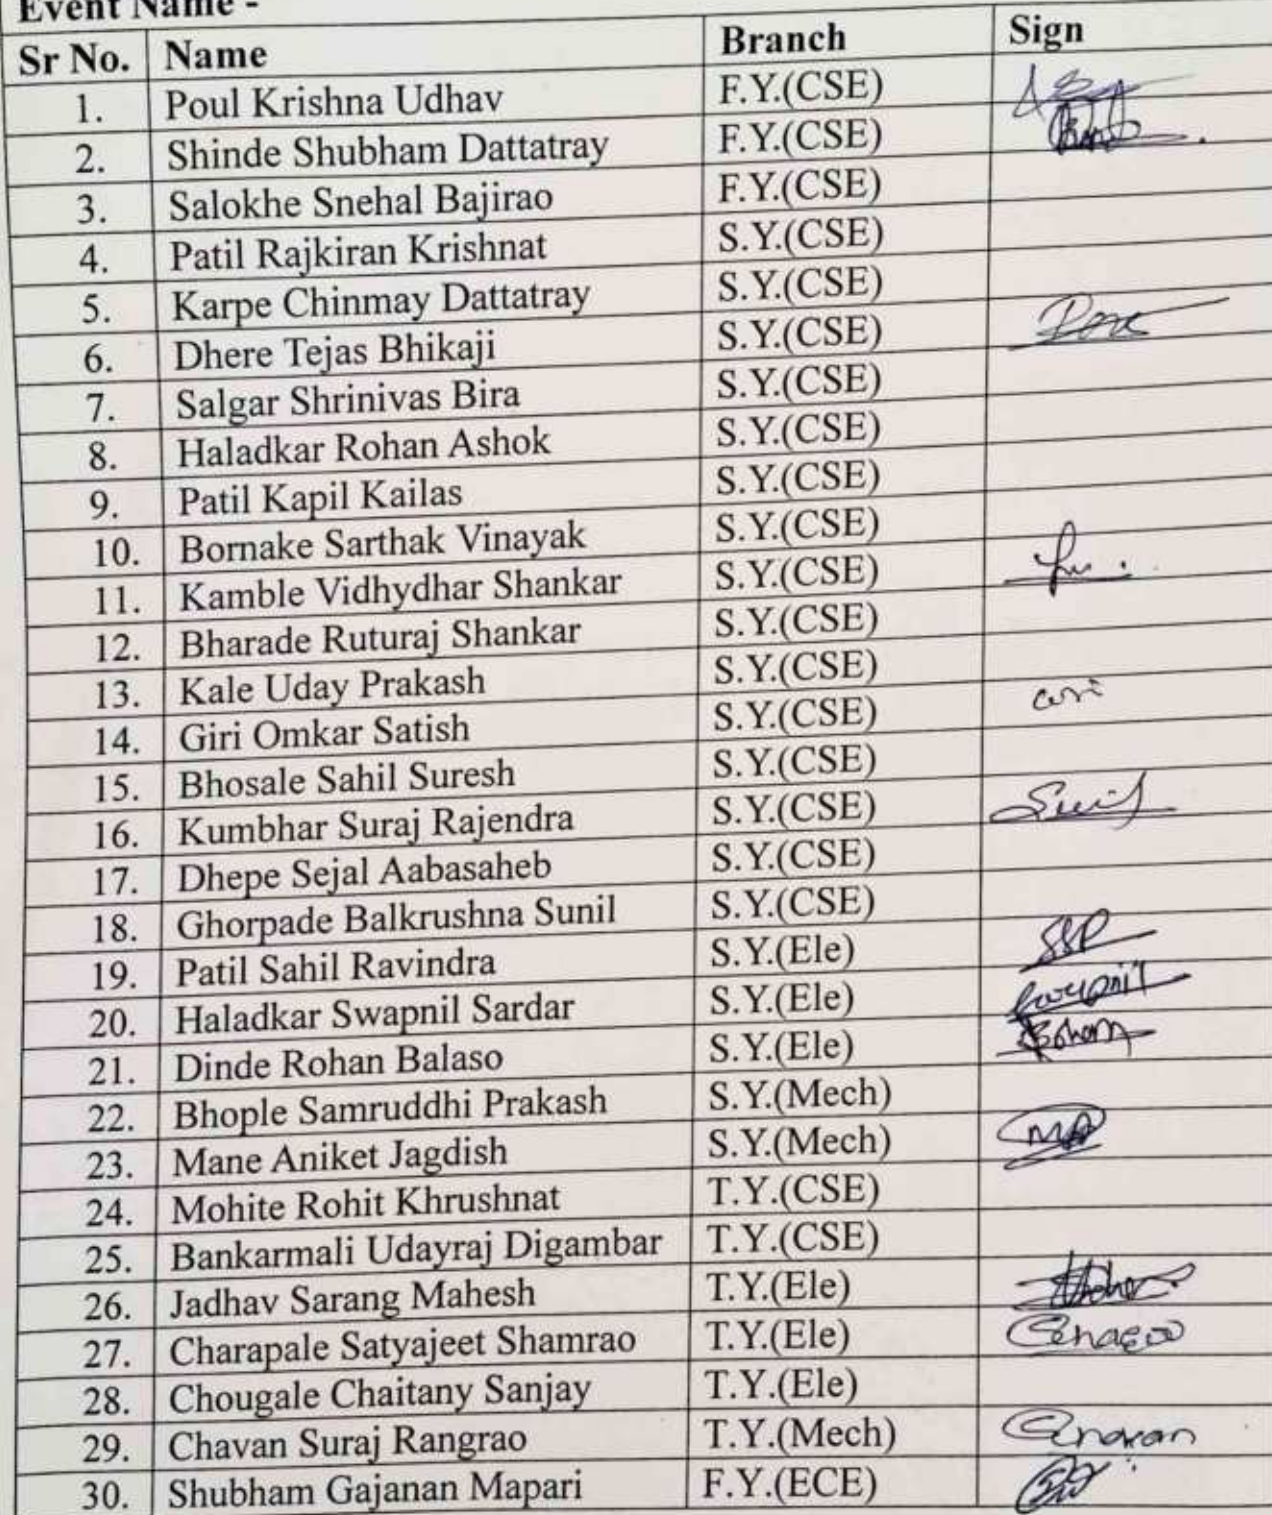 Event Name -
Sr No. Name Branch Sign
1. Poul Krishna Udhav F.Y.(CSE)
2. Shinde Shubham Dattatray F.Y.(CSE)
3. Salokhe Snehal Bajirao F.Y.(CSE)
4. Patil Rajkiran Krishnat S.Y.(CSE)
5. Karpe Chinmay Dattatray S.Y.(CSE)
6. Dhere Tejas Bhikaji S.Y.(CSE)
7. Salgar Shrinivas Bira S.Y.(CSE)
8. Haladkar Rohan Ashok S.Y.(CSE)
9. Patil Kapil Kailas S.Y.(CSE)
10. Bornake Sarthak Vinayak S.Y.(CSE)
11. Kamble Vidhydhar Shankar S.Y.(CSE)
12. Bharade Ruturaj Shankar S.Y.(CSE)
13. Kale Uday Prakash S.Y.(CSE)
14. Giri Omkar Satish S.Y.(CSE)
15. Bhosale Sahil Suresh S.Y.(CSE)
16. Kumbhar Suraj Rajendra S.Y.(CSE)
17. Dhepe Sejal Aabasaheb S.Y.(CSE)
18. Ghorpade Balkrushna Sunil S.Y.(CSE)
19. Patil Sahil Ravindra S.Y.(Ele) SSP
20. Haladkar Swapnil Sardar S.Y.(Ele) Swapnil
21. Dinde Rohan Balaso S.Y.(Ele) Rohan
22. Bhople Samruddhi Prakash S.Y.(Mech)
23. Mane Aniket Jagdish S.Y.(Mech)
24. Mohite Rohit Khrushnat T.Y.(CSE)
25. Bankarmali Udayraj Digambar T.Y.(CSE)
26. Jadhav Sarang Mahesh T.Y.(Ele)
27. Charapale Satyajeet Shamrao T.Y.(Ele)
28. Chougale Chaitany Sanjay T.Y.(Ele)
29. Chavan Suraj Rangrao T.Y.(Mech) Chavan
30. Shubham Gajanan Mapari F.Y.(ECE)